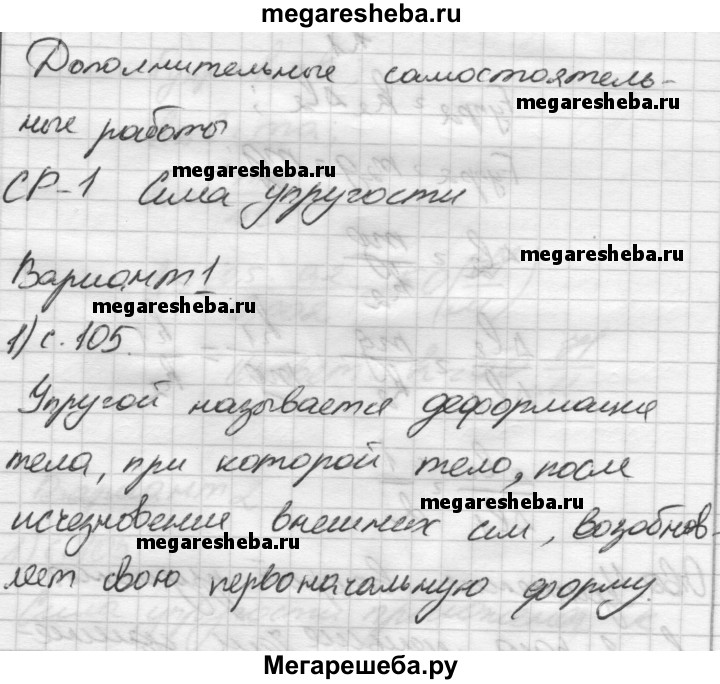 megaresheba.ru
Дополнительные самостоятель-
megaresheba.ru
ные работы
megaresheba.ru
СР-1 Сила упругости
megaresheba.ru
Вариант 1
megaresheba.ru
1) с. 105.
Упругой называется деформация
megaresheba.ru
тела, при которой тело, после
megaresheba.ru
исчезновении внешних сил, возобнов-
megaresheba.ru
ляет свою первоначальную форму.
megaresheba.ru
Мегарешеба.ру